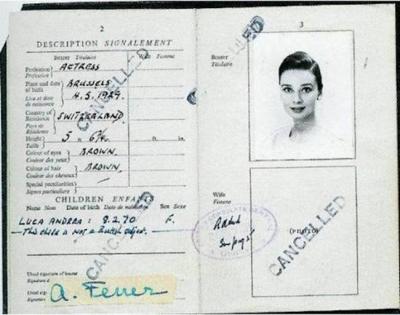 2
DESCRIPTION SIGNALEMENT
Bearer Titulaire Wife Femme
Profession ACTRESS
Profession
Place and date of birth BRUSSELS
Lieu et date de naissance 4.5.1929.
Country of Residence SWITZERLAND
Pays de Résidence
Height 5 ft. in. ft. in.
Taille
Colour of eyes BROWN
Couleur des yeux
Colour of hair BROWN
Couleur des cheveux
Special peculiarities
Signes particuliers
CHILDREN ENFANTS
Name Nom Date of birth Date de naissance Sex Sexe
LUCA ANDREA: 8.2.70
This child is not a British subject.
Usual signature of bearer
Signature
Usual
Signature
A. Ferrer
CANCELLED
CANCELLED
3
Bearer
Titulaire
CANCELLED
Wife
Femme
(PHOTO)
CANCELLED